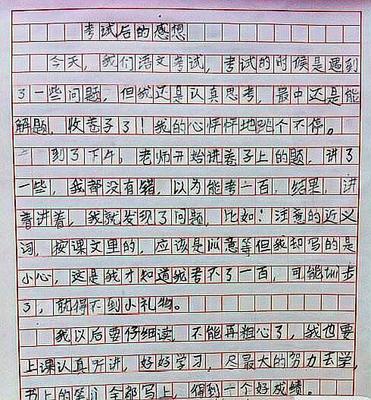 考试后的感想
今天，我们语文考试，考试的时候是遇到
了一些问题，但我还是认真思考，最中还是能
解题，收卷子了！我的心怦怦地跳个不停。
到了下午，老师开始讲卷子上的题，讲了
一些，我都没有错，以为能考一百，结果，讲
着讲着，我就发现了问题，比如！注意的近义
词，按课文里的，应该是 意等但我却写的是
小心，这是我才知道我考不了一百，可能 步
了，就得不到小礼物。
我以后要仔细读，不能再粗心了，我也要
上课认真听讲，好好学习，尽最大的努力去学，
书上的笔 全部写上，得到一个好成绩。